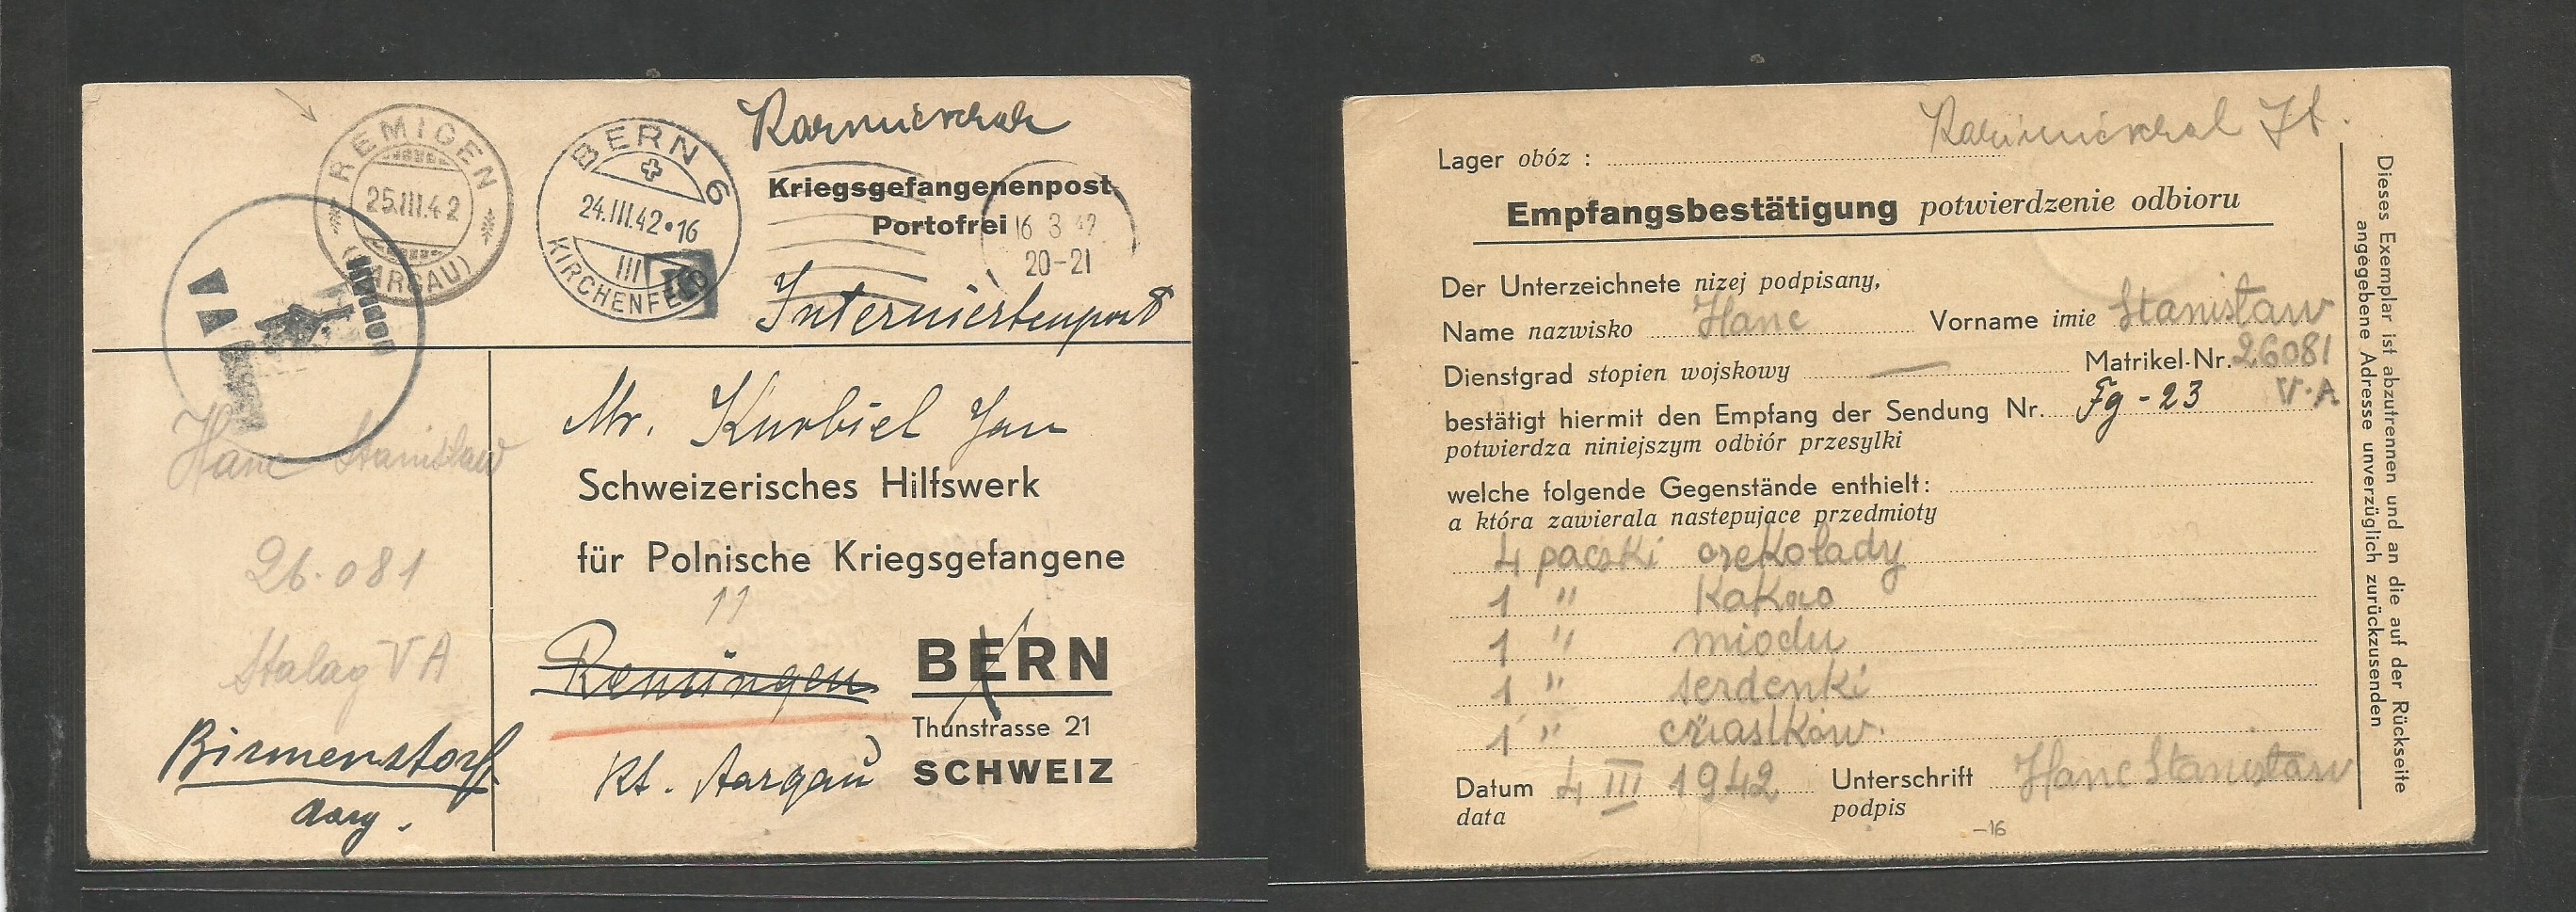 REMIGEN
25.III.42
(AARGAU)
BERN 6
24.III.42•16
III
KIRCHENFELD
Kriegsgefangenenpost
Portofrei
16 3 42
20-21
Interniertenpost
V A
Mr. Kurbiel Jan
Schweizerisches Hilfswerk
für Polnische Kriegsgefangene
11
Hanc Stanisław
26.081
Stalag V A
Remingen
BERN
Thunstrasse 21
Kt. Aargau
SCHWEIZ
Birmenstorf
Aarg.
Lager obóz :
Empfangsbestätigung potwierdzenie odbioru
Der Unterzeichnete nizej podpisany,
Name nazwisko Hanc Vorname imie Stanisław
Dienstgrad stopien wojskowy — Matrikel-Nr. 26081
V.A
bestätigt hiermit den Empfang der Sendung Nr. Fg - 23
potwierdza niniejszym odbiór przesylki
welche folgende Gegenstände enthielt:
a która zawierala nastepujace przedmioty
4 paczki czekolady
1 " kakao
1 " miodu
1 " serdenki
1 " ciastków.
Datum 4 III 1942 Unterschrift Hanc Stanisław
data podpis
-16
Dieses Exemplar ist abzutrennen und an die auf der Rückseite
angegebene Adresse unverzüglich zurückzusenden